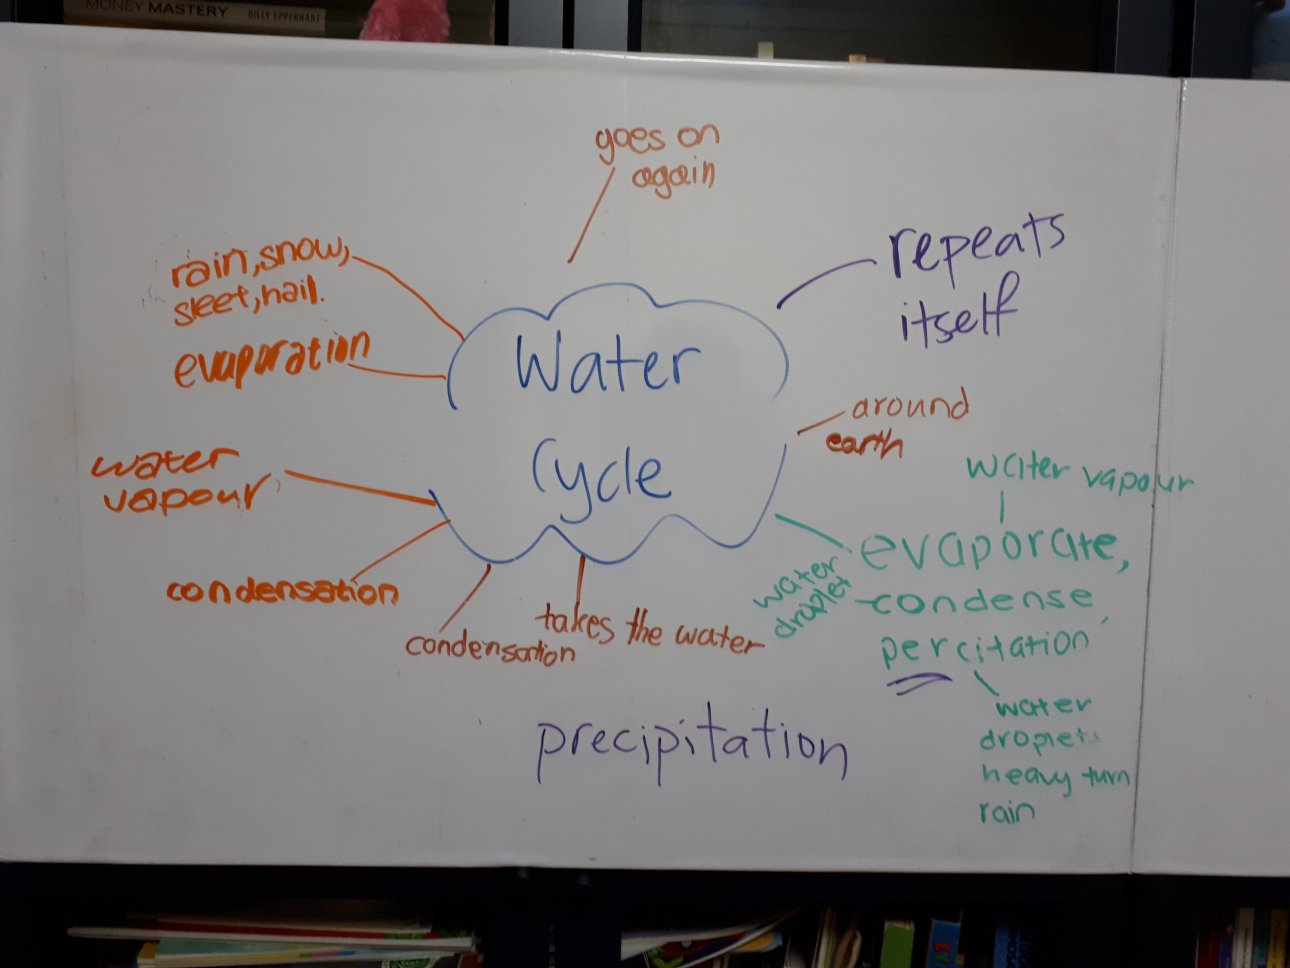 MONEY MASTERY BILLY EPPERHART
goes on
again
rain, snow,
sleet, hail.
repeats
itself
evaporation
Water
Cycle
around
earth
water
vapour
water vapour
evaporate,
water
droplet
condense,
percitation
condensation
condensation
takes the water
water
droplets
heavy turn
rain
precipitation